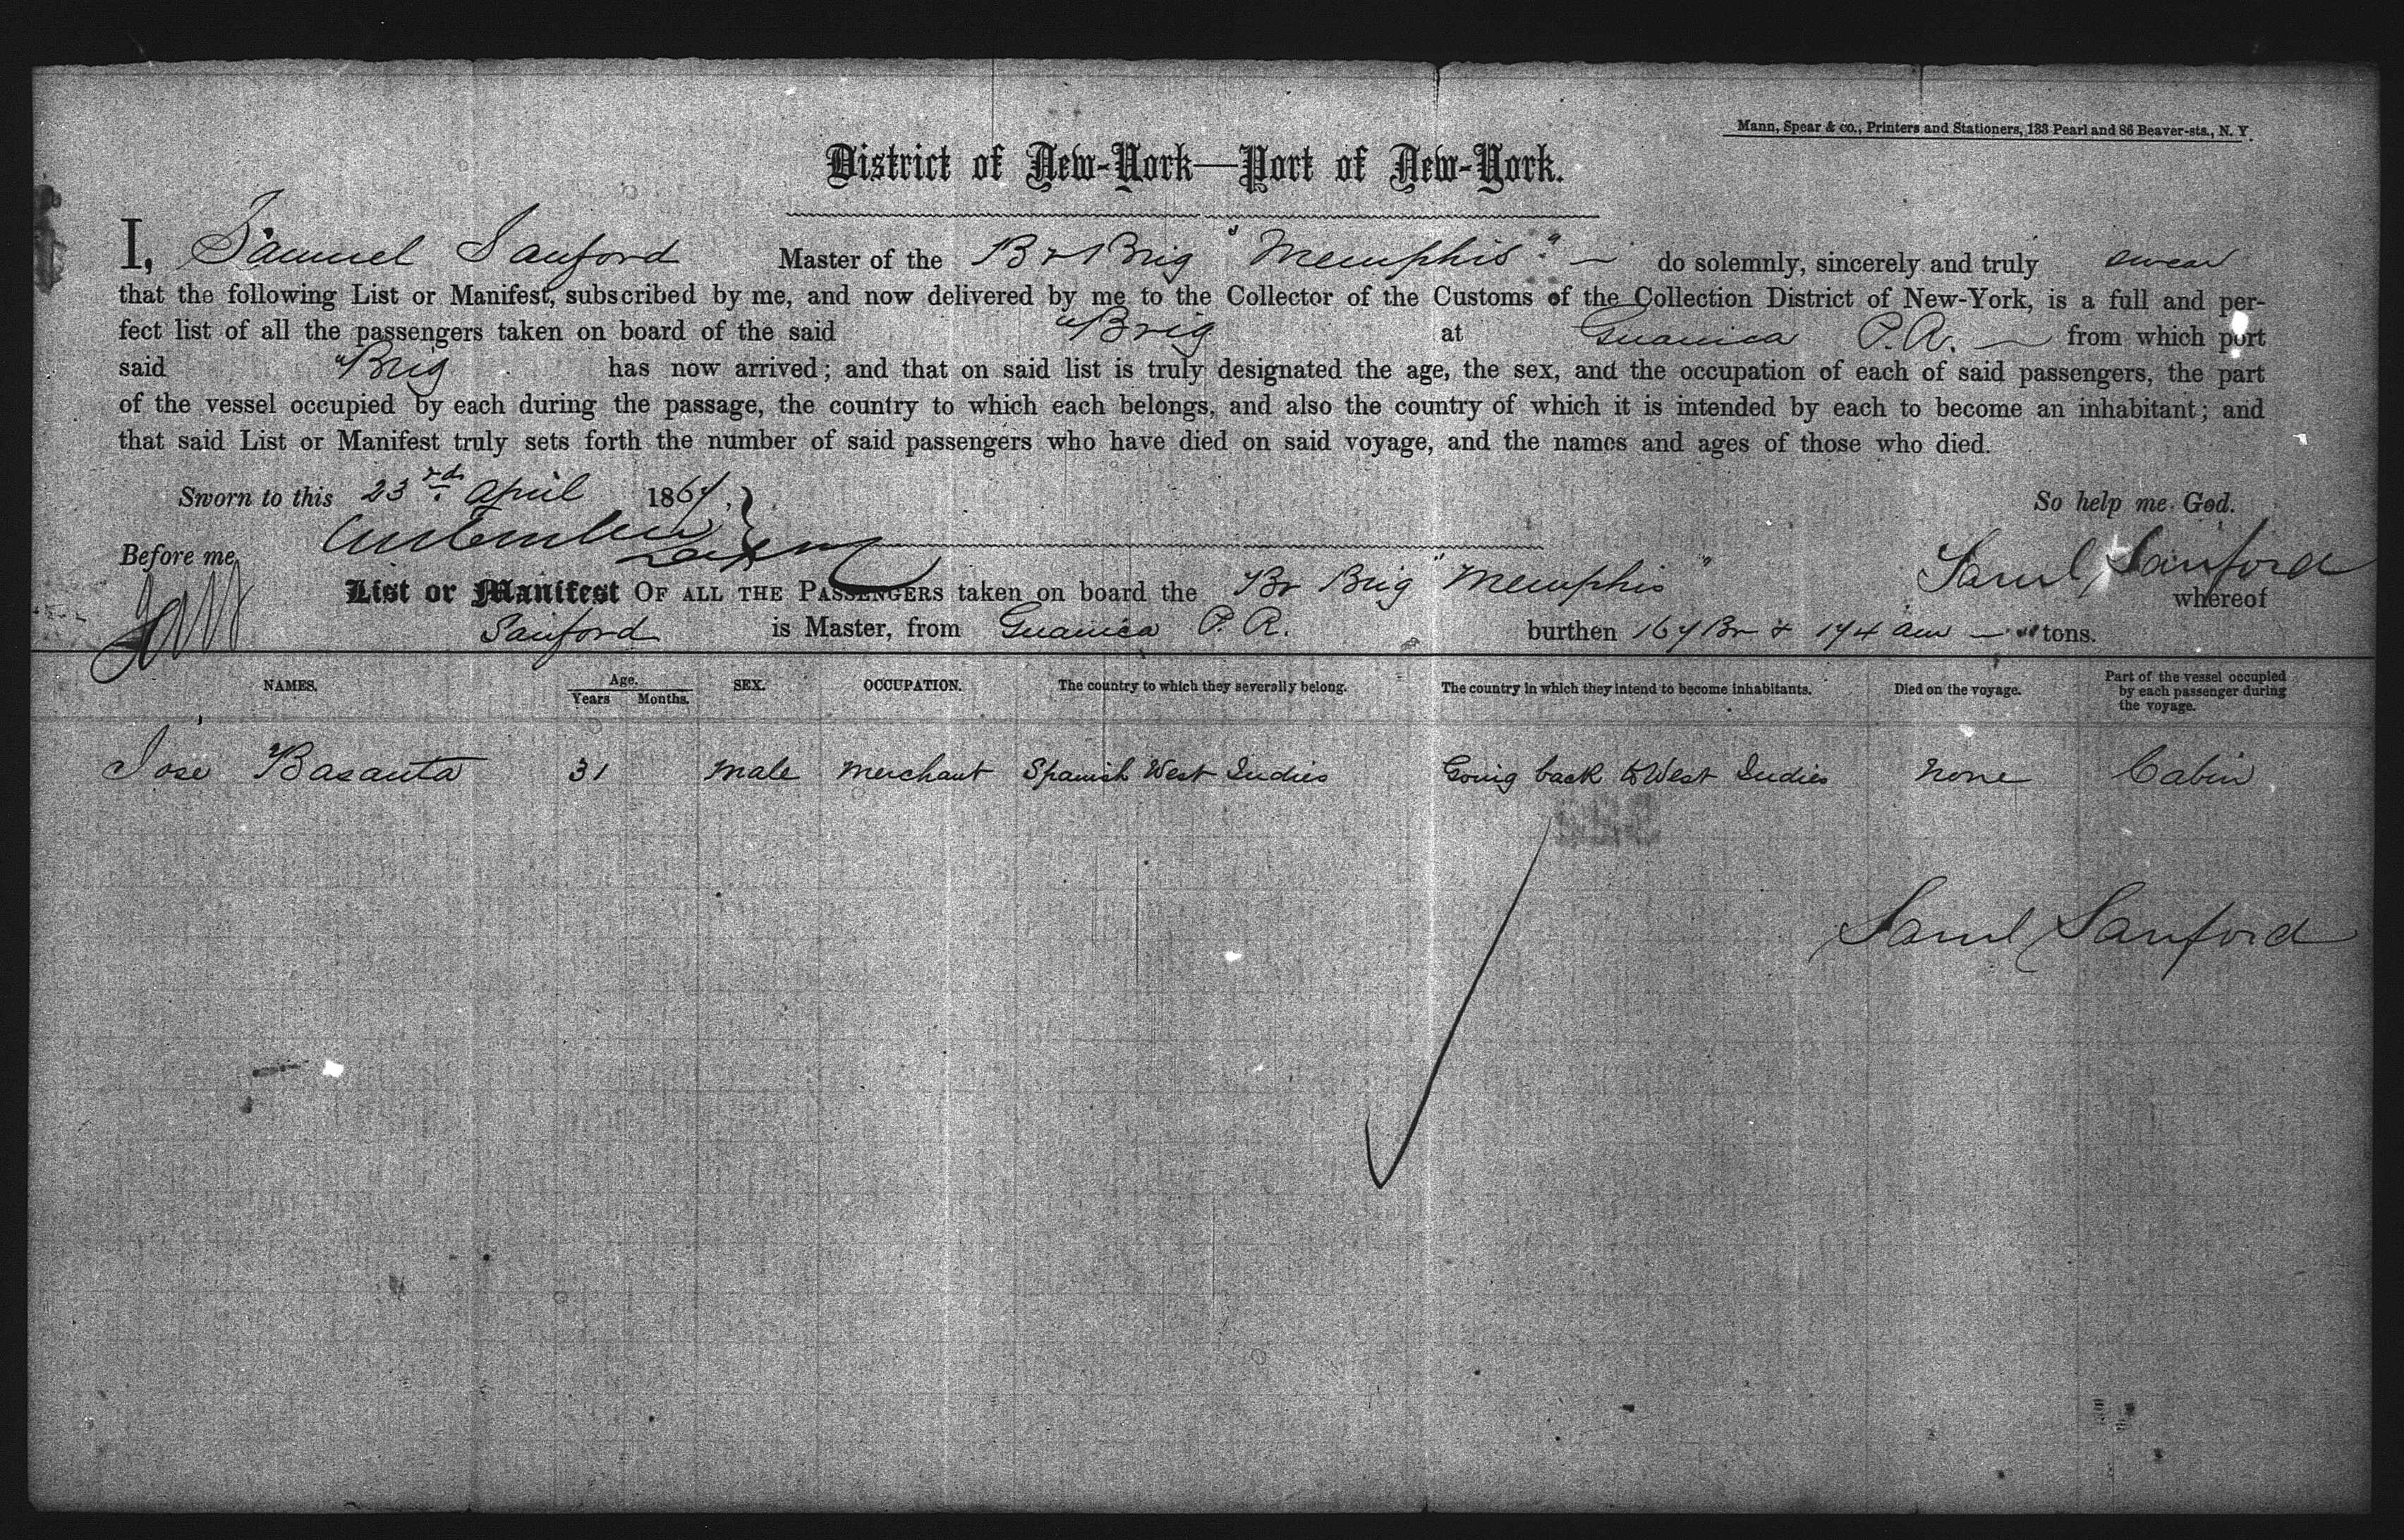 Mann, Spear & co., Printers and Stationers, 133 Pearl and 86 Beaver-sts., N. Y.
District of New-York—Port of New-York.
I, Samuel Sanford Master of the Br Brig "Memphis" do solemnly, sincerely and truly swear
that the following List or Manifest, subscribed by me, and now delivered by me to the Collector of the Customs of the Collection District of New-York, is a full and per-
fect list of all the passengers taken on board of the said Brig at Guanica P.R. from which port
said Brig has now arrived; and that on said list is truly designated the age, the sex, and the occupation of each of said passengers, the part
of the vessel occupied by each during the passage, the country to which each belongs, and also the country of which it is intended by each to become an inhabitant; and
that said List or Manifest truly sets forth the number of said passengers who have died on said voyage, and the names and ages of those who died.
Sworn to this 23rd April 186 So help me God.
Before me, Saml Sanford
List or Manifest OF ALL THE PASSENGERS taken on board the Br Brig "Memphis" whereof
Sanford is Master, from Guanica P. R. burthen 167 Br & 174 Am tons.
NAMES. Age. Years Months. SEX. OCCUPATION. The country to which they severally belong. The country in which they intend to become inhabitants. Died on the voyage. Part of the vessel occupied by each passenger during the voyage.
Jose Basanta 31 male merchant Spanish West Indies Going back to West Indies none Cabin
Saml Sanford